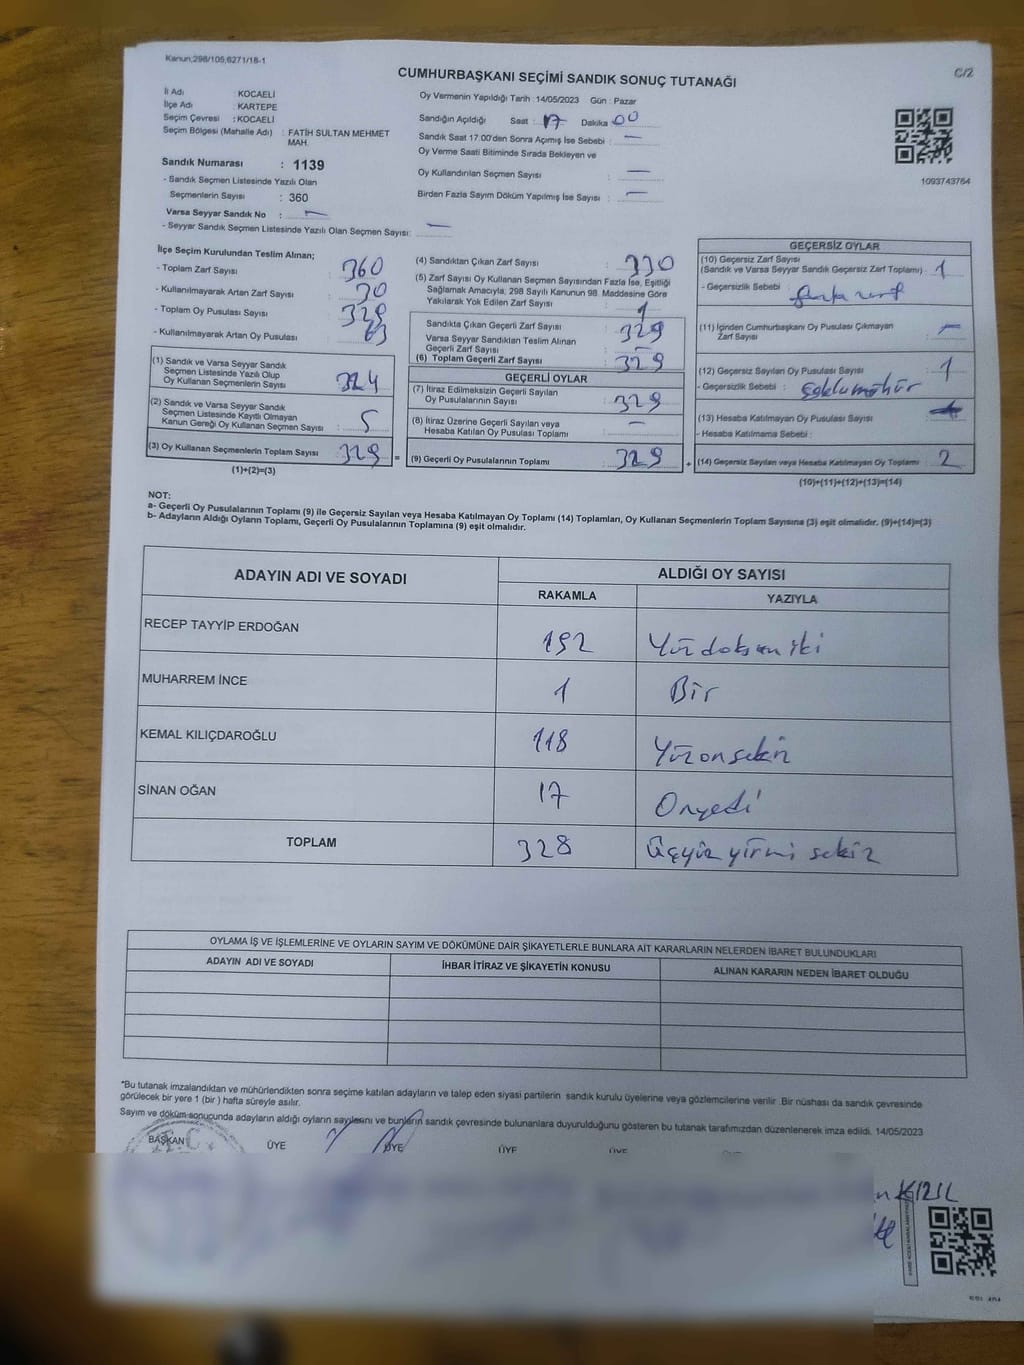 Kanun;298/105,6271/18-1
CUMHURBAŞKANI SEÇİMİ SANDIK SONUÇ TUTANAĞI
C/2
İl Adı : KOCAELİ
İlçe Adı : KARTEPE
Seçim Çevresi : KOCAELİ
Seçim Bölgesi (Mahalle Adı) : FATİH SULTAN MEHMET MAH.
Sandık Numarası : 1139
- Sandık Seçmen Listesinde Yazılı Olan
Seçmenlerin Sayısı : 360
Varsa Seyyar Sandık No : —
- Seyyar Sandık Seçmen Listesinde Yazılı Olan Seçmen Sayısı: —
Oy Vermenin Yapıldığı Tarih :14/05/2023 Gün : Pazar
Sandığın Açıldığı Saat : 17 Dakika 00
Sandık Saat 17.00'den Sonra Açımış İse Sebebi : —
Oy Verme Saati Bitiminde Sırada Bekleyen ve
Oy Kullandırılan Seçmen Sayısı : —
Birden Fazla Sayım Döküm Yapılmış İse Sayısı : —
1093743764
İlçe Seçim Kurulundan Teslim Alınan;
- Toplam Zarf Sayısı : 360
- Kullanılmayarak Artan Zarf Sayısı : 30
- Toplam Oy Pusulası Sayısı
- Kullanılmayarak Artan Oy Pusulası : 63
(1) Sandık ve Varsa Seyyar Sandık
Seçmen Listesinde Yazılı Olup
Oy Kullanan Seçmenlerin Sayısı : 324
(2) Sandık ve Varsa Seyyar Sandık
Seçmen Listesinde Kayıtlı Olmayan
Kanun Gereği Oy Kullanan Seçmen Sayısı : 5
(3) Oy Kullanan Seçmenlerin Toplam Sayısı : 329
(1)+(2)=(3)
(4) Sandıktan Çıkan Zarf Sayısı : 330
(5) Zarf Sayısı Oy Kullanan Seçmen Sayısından Fazla İse, Eşitliği
Sağlamak Amacıyla, 298 Sayılı Kanunun 98. Maddesine Göre
Yakılarak Yok Edilen Zarf Sayısı : 1
Sandıkta Çıkan Geçerli Zarf Sayısı : 329
Varsa Seyyar Sandıktan Teslim Alınan
Geçerli Zarf Sayısı : —
(6) Toplam Geçerli Zarf Sayısı : 329
GEÇERLİ OYLAR
(7) İtiraz Edilmeksizin Geçerli Sayılan
Oy Pusulalarının Sayısı : 329
(8) İtiraz Üzerine Geçerli Sayılan veya
Hesaba Katılan Oy Pusulası Toplamı : —
= (9) Geçerli Oy Pusulalarının Toplamı : 329
GEÇERSİZ OYLAR
(10) Geçersiz Zarf Sayısı
(Sandık ve Varsa Seyyar Sandık Geçersiz Zarf Toplamı) : 1
- Geçersizlik Sebebi : fazla zarf
(11) İçinden Cumhurbaşkanı Oy Pusulası Çıkmayan
Zarf Sayısı : —
(12) Geçersiz Sayılan Oy Pusulası Sayısı : 1
- Geçersizlik Sebebi :
(13) Hesaba Katılmayan Oy Pusulası Sayısı
- Hesaba Katılmama Sebebi :
+ (14) Geçersiz Sayılan veya Hesaba Katılmayan Oy Toplamı : 2
(10)+(11)+(12)+(13)=(14)
NOT:
a- Geçerli Oy Pusulalarının Toplamı (9) ile Geçersiz Sayılan veya Hesaba Katılmayan Oy Toplamı (14) Toplamları, Oy Kullanan Seçmenlerin Toplam Sayısına (3) eşit olmalıdır. (9)+(14)=(3)
b- Adayların Aldığı Oyların Toplamı, Geçerli Oy Pusulalarının Toplamına (9) eşit olmalıdır.
ADAYIN ADI VE SOYADI ALDIĞI OY SAYISI
RAKAMLA YAZIYLA
RECEP TAYYİP ERDOĞAN 192 Yüzdoksan iki
MUHARREM İNCE 1 Bir
KEMAL KILIÇDAROĞLU 118 Yüzonsekiz
SİNAN OĞAN 17 Onyedi
TOPLAM 328 Üçyüz yirmi sekiz
OYLAMA İŞ VE İŞLEMLERİNE VE OYLARIN SAYIM VE DÖKÜMÜNE DAİR ŞİKAYETLERLE BUNLARA AİT KARARLARIN NELERDEN İBARET BULUNDUKLARI
ADAYIN ADI VE SOYADI İHBAR İTİRAZ VE ŞİKAYETİN KONUSU ALINAN KARARIN NEDEN İBARET OLDUĞU
*Bu tutanak imzalandıktan ve mühürlendikten sonra seçime katılan adayların ve talep eden siyasi partilerin sandık kurulu üyelerine veya gözlemcilerine verilir .Bir nüshası da sandık çevresinde
görülecek bir yere 1 (bir ) hafta süreyle asılır.
Sayım ve döküm sonucunda adayların aldığı oyların sayılarını ve bunların sandık çevresinde bulunanlara duyurulduğunu gösteren bu tutanak tarafımızdan düzenlenerek imza edildi. 14/05/2023
BAŞKAN ÜYE ÜYE ÜYE ÜYE